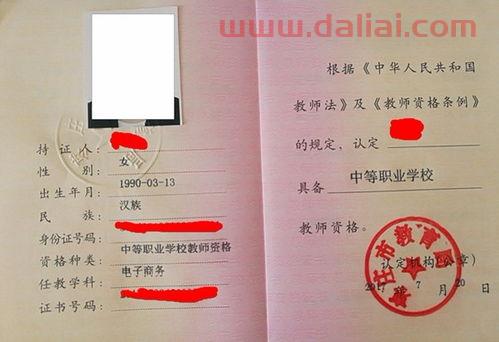 www.daliai.com
持 证 人：
性 别： 女
出生年月： 1990-03-13
民 族： 汉族
身份证号码：
资格种类： 中等职业学校教师资格
任教学科： 电子商务
证书号码：
根据《中华人民共和国
教师法》及《教师资格条例》
的规定，认定
具备 中等职业学校
教师资格。
市教育
认定机构(公章)
7 月 20 日